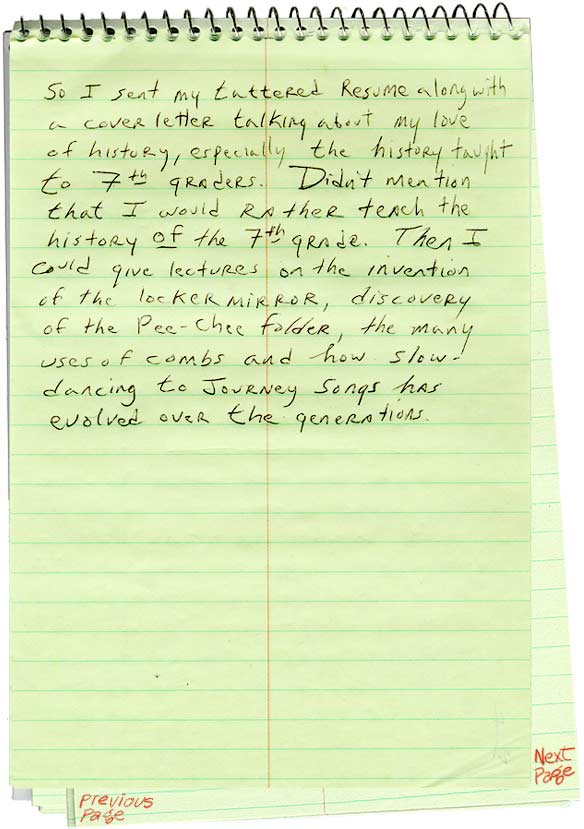 So I sent my tattered Resume along with
a cover letter talking about my love
of history, especially the history taught
to 7th graders. Didn't mention
that I would RATHER teach the
history of the 7th grade. Then I
could give lectures on the invention
of the locker mirror, discovery
of the Pee-Chee folder, the many
uses of combs and how slow-
dancing to Journey songs has
evolved over the generations.
Next
Page
Previous
Page